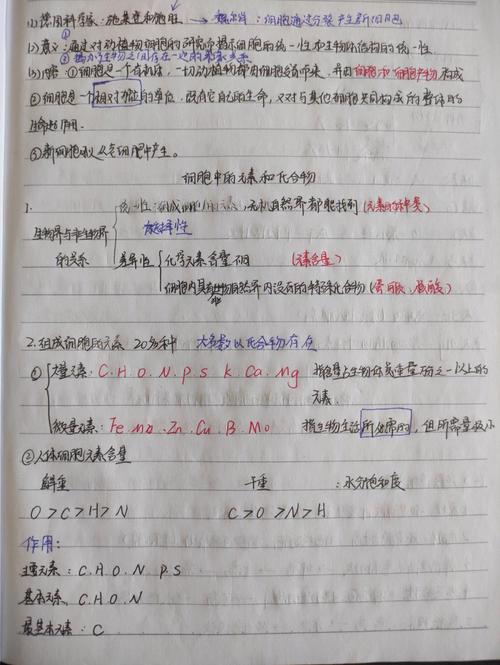 (1) 德国科学家：施莱登和施旺 → 魏尔肖：细胞通过分裂产生新细胞
(2) 意义：通过对动植物细胞的研究而揭示细胞的统一性和生物体结构的统一性。
①揭示了生物之间存在一定的亲缘关系
(3) 内容：①细胞是一个有机体，一切动植物都由细胞发育而来，并由细胞和细胞产物构成
②细胞是一个相对独立的单位，既有它自己的生命，又对与其他细胞共同构成的整体的
生命起作用。
③新细胞可以从老细胞中产生。
细胞中的元素和化合物
1.
生物界与非生物界
的关系
统一性：组成细胞的元素，无机自然界都能找到（元素的种类）
差异性
化学元素含量不同 （元素含量）
2. 组成细胞的元素 20多种 大多数以化合物存在
① 大量元素：C、H、O、N、P、S、K、Ca、Mg 指含量占生物体总重量万分之一以上的
元素。
微量元素：Fe、Mn、Zn、Cu、B、Mo 指生物生活所必需的，但所需量极小
②人体细胞元素含量
鲜重 干重：水分饱和度
O>C>H>N C>O>N>H
作用：
主要元素：C、H、O、N、P、S
基本元素：C、H、O、N
最基本元素：C